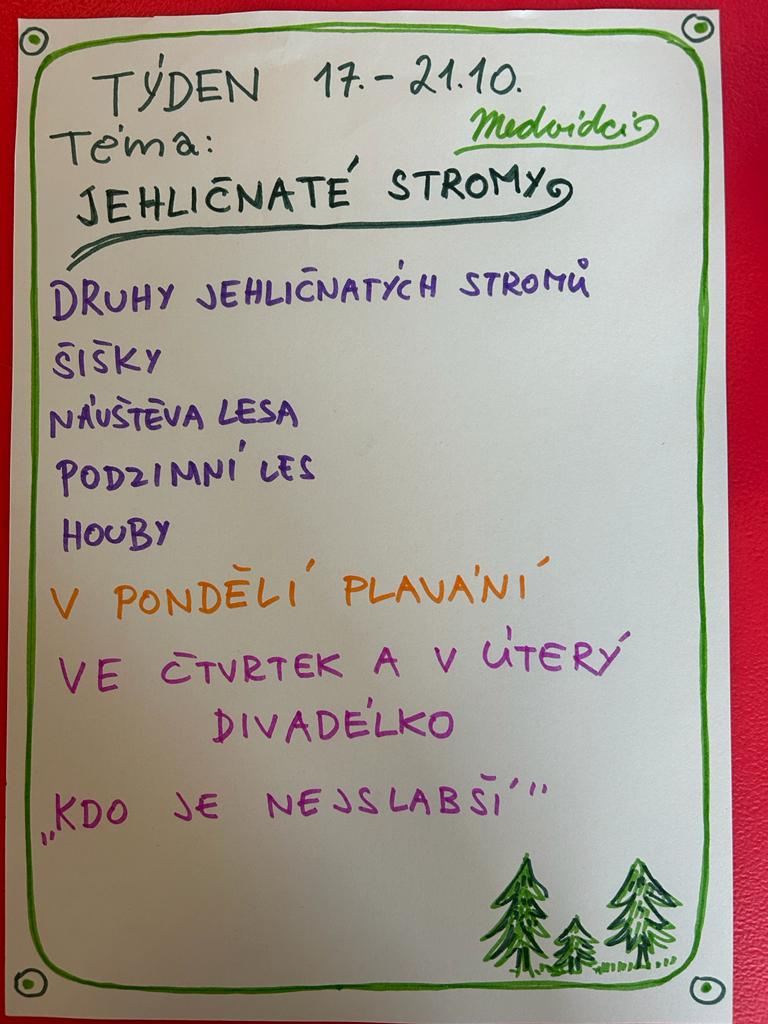 TÝDEN 17.-21.10.
Medvídci
Téma:
JEHLIČNATÉ STROMY
DRUHY JEHLIČNATÝCH STROMŮ
ŠIŠKY
NÁVŠTĚVA LESA
PODZIMNÍ LES
HOUBY
V PONDĚLÍ PLAVÁNÍ
VE ČTVRTEK A V ÚTERÝ
DIVADÉLKO
„KDO JE NEJSLABŠÍ"